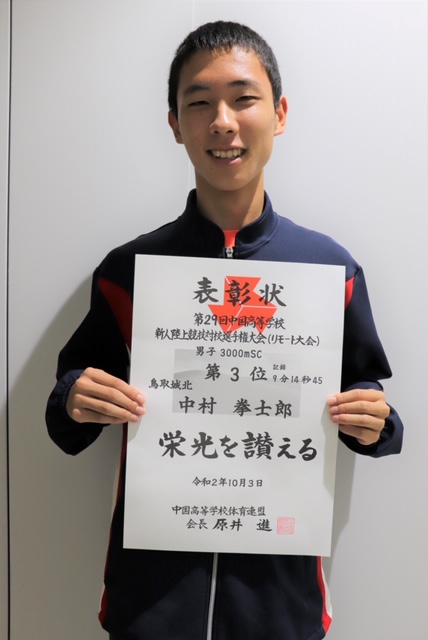 表彰状
第29回中国高等学校
新人陸上競技対校選手権大会(リモート大会)
男子 3000mSC
第3位 記録 9分14秒45
鳥取城北
中村 拳士郎
栄光を讃える
令和2年10月3日
中国高等学校体育連盟
会長 原井 進